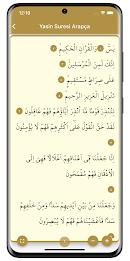 12:10
Yasin Suresi Arapça
يسٓ ﴿١﴾ وَالْقُرْاٰنِ الْحَك۪يمِۙ ﴿٢﴾
اِنَّكَ لَمِنَ الْمُرْسَل۪ينَۙ ﴿٣﴾
عَلٰى صِرَاطٍ مُسْتَق۪يمٍۜ ﴿٤﴾
تَنْز۪يلَ الْعَز۪يزِ الرَّح۪يمِۙ ﴿٥﴾
لِتُنْذِرَ قَوْمًا مَٓا اُنْذِرَ اٰبَٓاؤُ۬هُمْ فَهُمْ غَافِلُونَ ﴿٦﴾
لَقَدْ حَقَّ الْقَوْلُ عَلٰٓى اَكْثَرِهِمْ فَهُمْ لَا يُؤْمِنُونَ
اِنَّا جَعَلْنَا ف۪ٓي اَعْنَاقِهِمْ اَغْلَالًا فَهِيَ اِلَى
الْاَذْقَانِ فَهُمْ مُقْمَحُونَ
وَجَعَلْنَا مِنْ بَيْنِ اَيْد۪يهِمْ سَدًّا وَمِنْ خَلْفِهِمْ
سَدًّا فَاَغْشَيْنَاهُمْ فَهُمْ لَا يُبْصِرُونَ